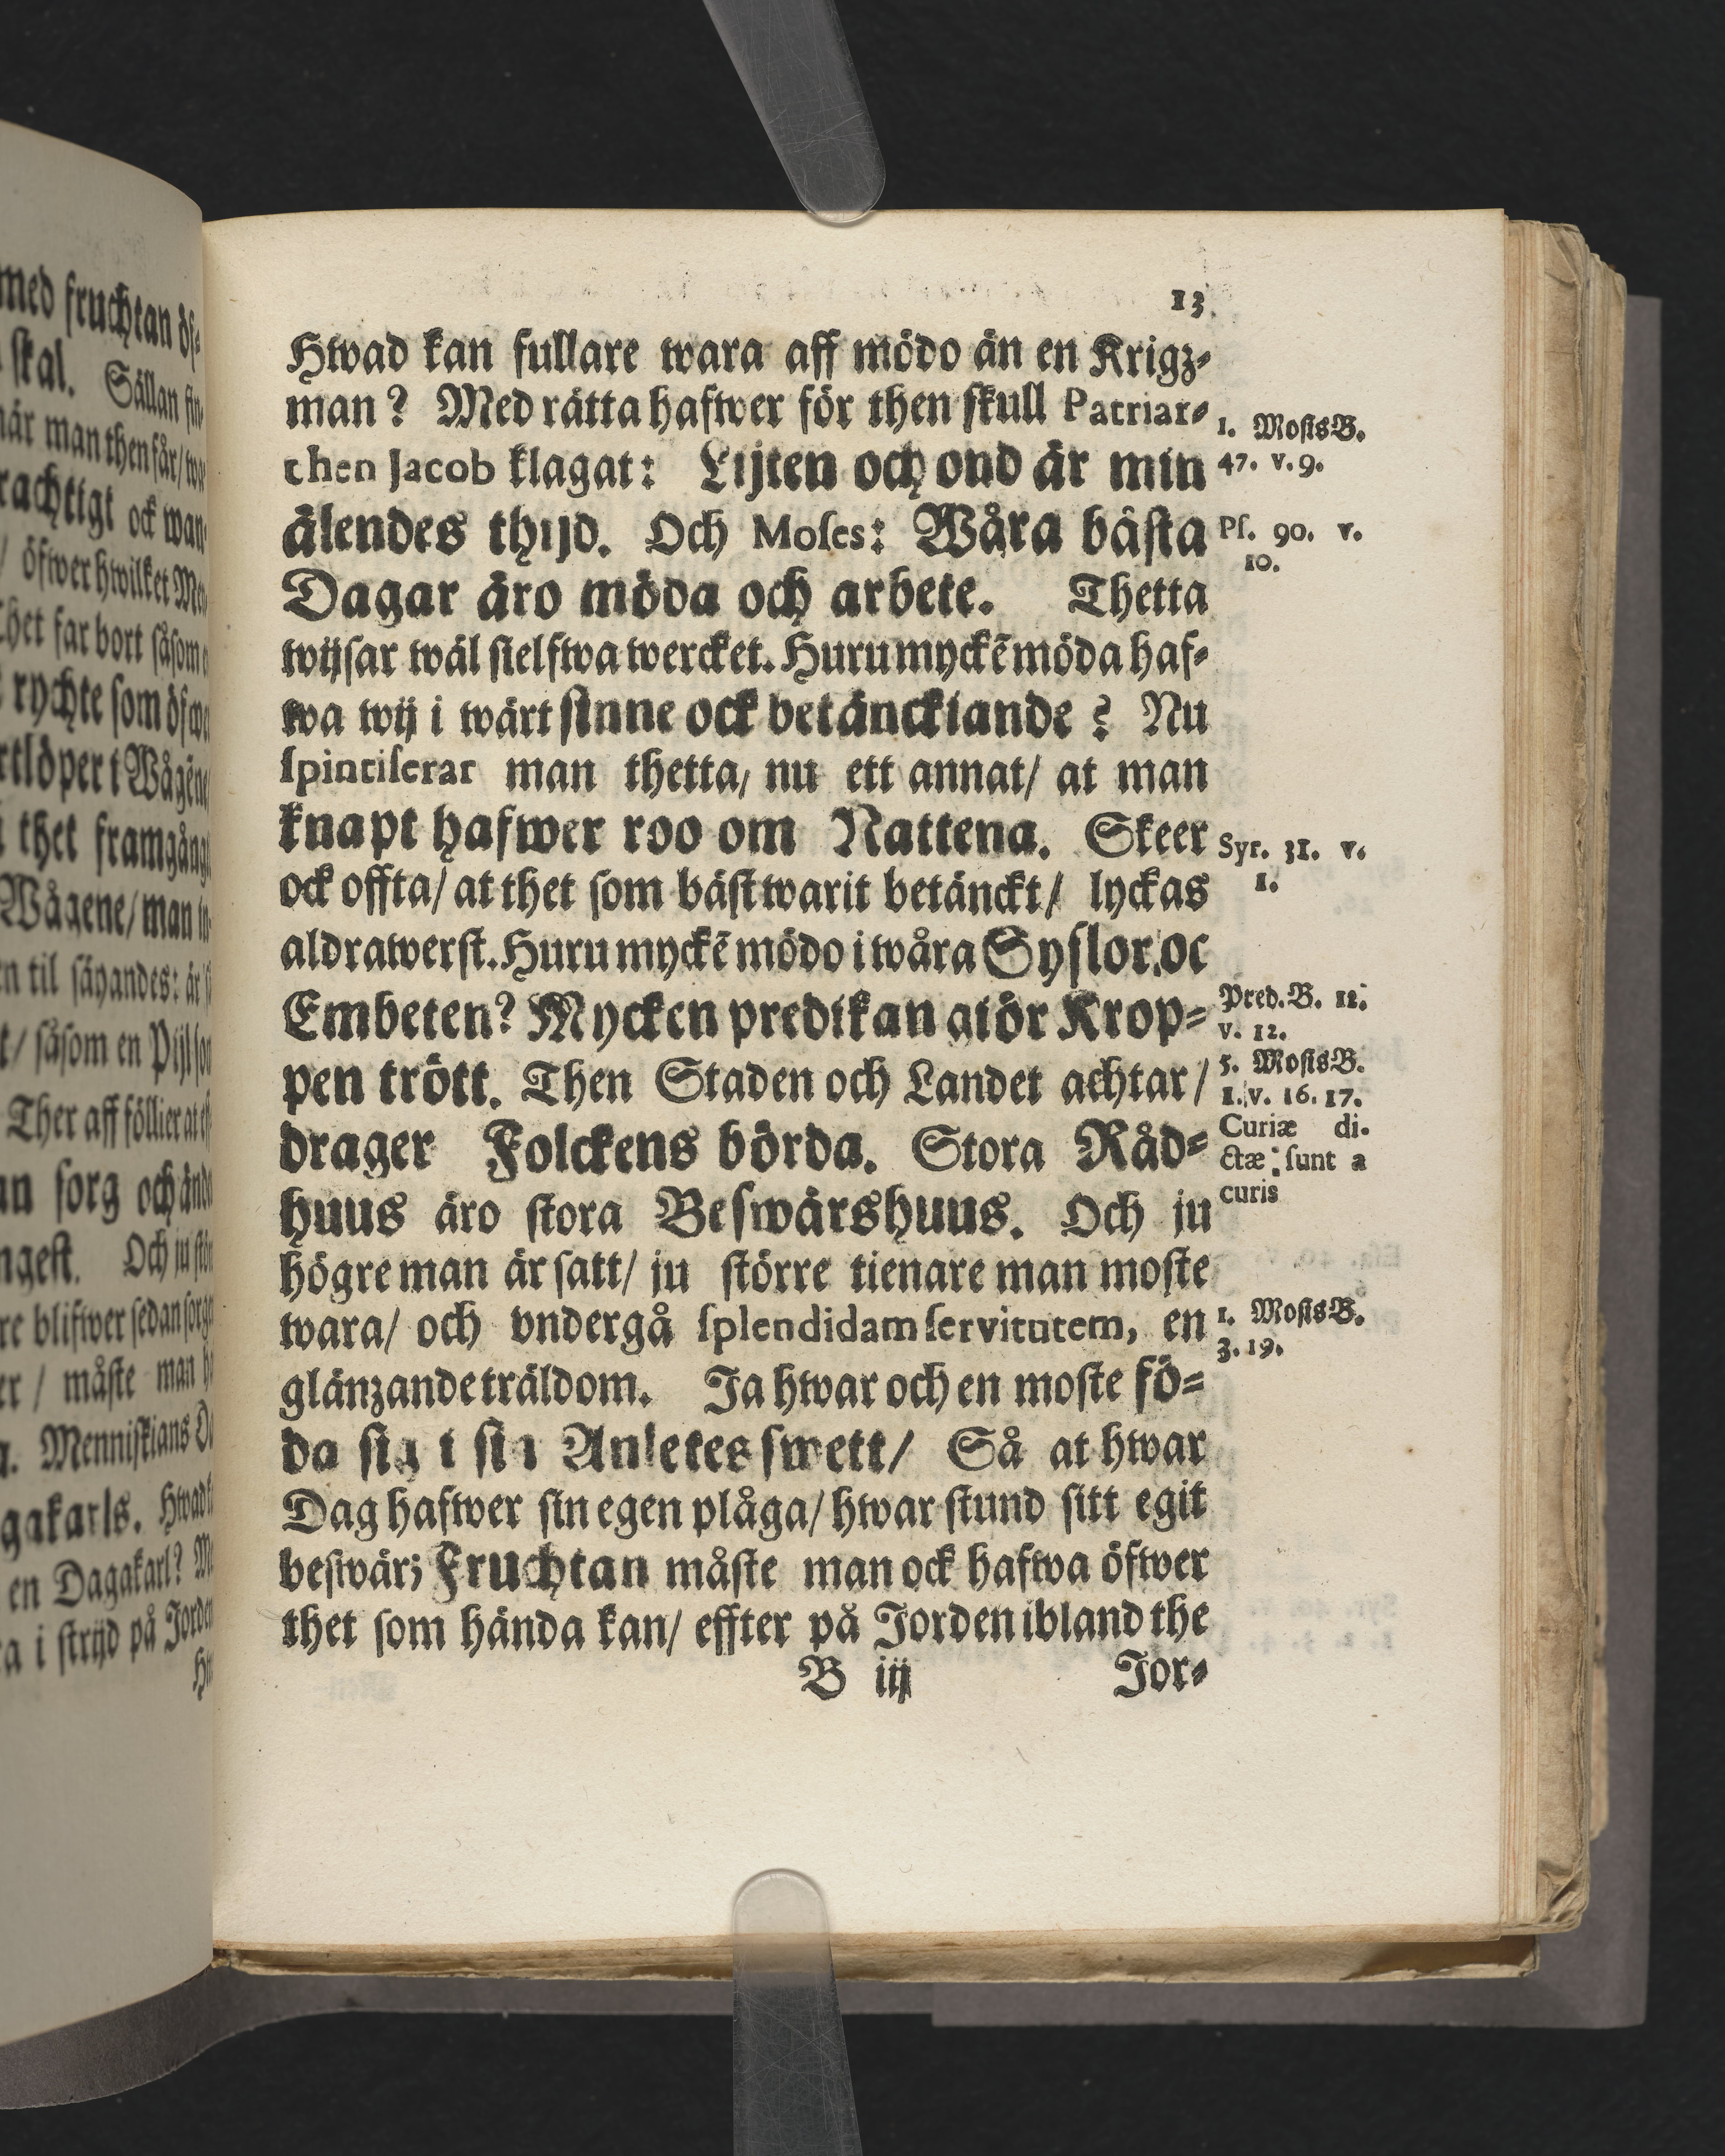 13.
Hwad kan fullare wara aff mödo än en Krigz⸗
man? Med rätta hafwer för then skull Patriar⸗
chen Jacob klagat: Lijten och ond är min
älendes thijd. Och Moses: Wåra bästa
Dagar äro möda och arbete. Thetta
wijsar wäl sielfwa wercket. Huru myckẽ möda haf⸗
wa wij i wårt sinne ock betänckiande? Nu
spintiserar man thetta, nu ett annat/ at man
knapt hafwer roo om Nattena. Skeer
ock offta/ at thet som bäst warit betänckt/ lyckas
aldrawerst. Huru myckẽ mödo i wåra Syslor oc
Embeten? Mycken predikan giör Krop⸗
pen trött. Then Staden och Landet achtar/
drager Folckens börda. Stora Råd⸗
huus äro stora Beswärshuus. Och ju
högre man är satt/ ju större tienare man moste
wara/ och vndergå splendidam servitutem, en
glänzande träldom. Ja hwar och en moste fö⸗
da sig i sin Anletes swett/ Så at hwar
Dag hafwer sin egen plåga/ hwar stund sitt egit
beswär; Fruchtan måste man ock hafwa öfwer
thet som hända kan/ effter på Jorden ibland the
B iij Jor⸗
1. MosisB.
47. v. 9.
Ps. 90. v.
10.
Syr. 31. v.
1.
Pred. B. 12.
v. 12.
5. MosisB.
1. v. 16. 17.
Curiæ di-
ctæ sunt a
curis
1. MosisB.
3. 19.
med fruchtan
skal. Sällan
när man then får/
öfwer hwilket
Thet far bort såsom
rychte som
thet framgång
Wågene/ man
til säyandes: är
såsom en Pijl
Ther aff föllier at
sorg och
Och ju
blifwer sedan
måste man
Menniskians
en Dagakarl?
i strijd på Jorden